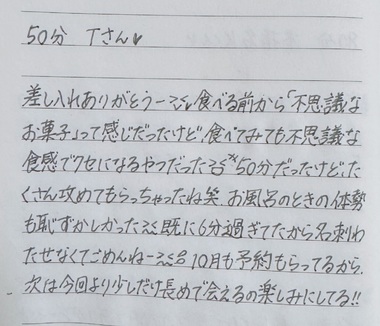 50分 Tさん♥
差し入れありがとうー>ᯅ<♥食べる前から「不思議な
お菓子」って感じだったけど、食べてみても不思議な
食感でクセになるやつだった 50分だったけど、た
くさん攻めてもらっちゃったね笑 お風呂のときの体勢
も恥ずかしかった>ᯅ< 既に6分過ぎてたから名刺わ
たせなくてごめんねー>ᯅ< 10月も予約もらってるから、
次は今回より少しだけ長めで会えるの楽しみにしてる!!